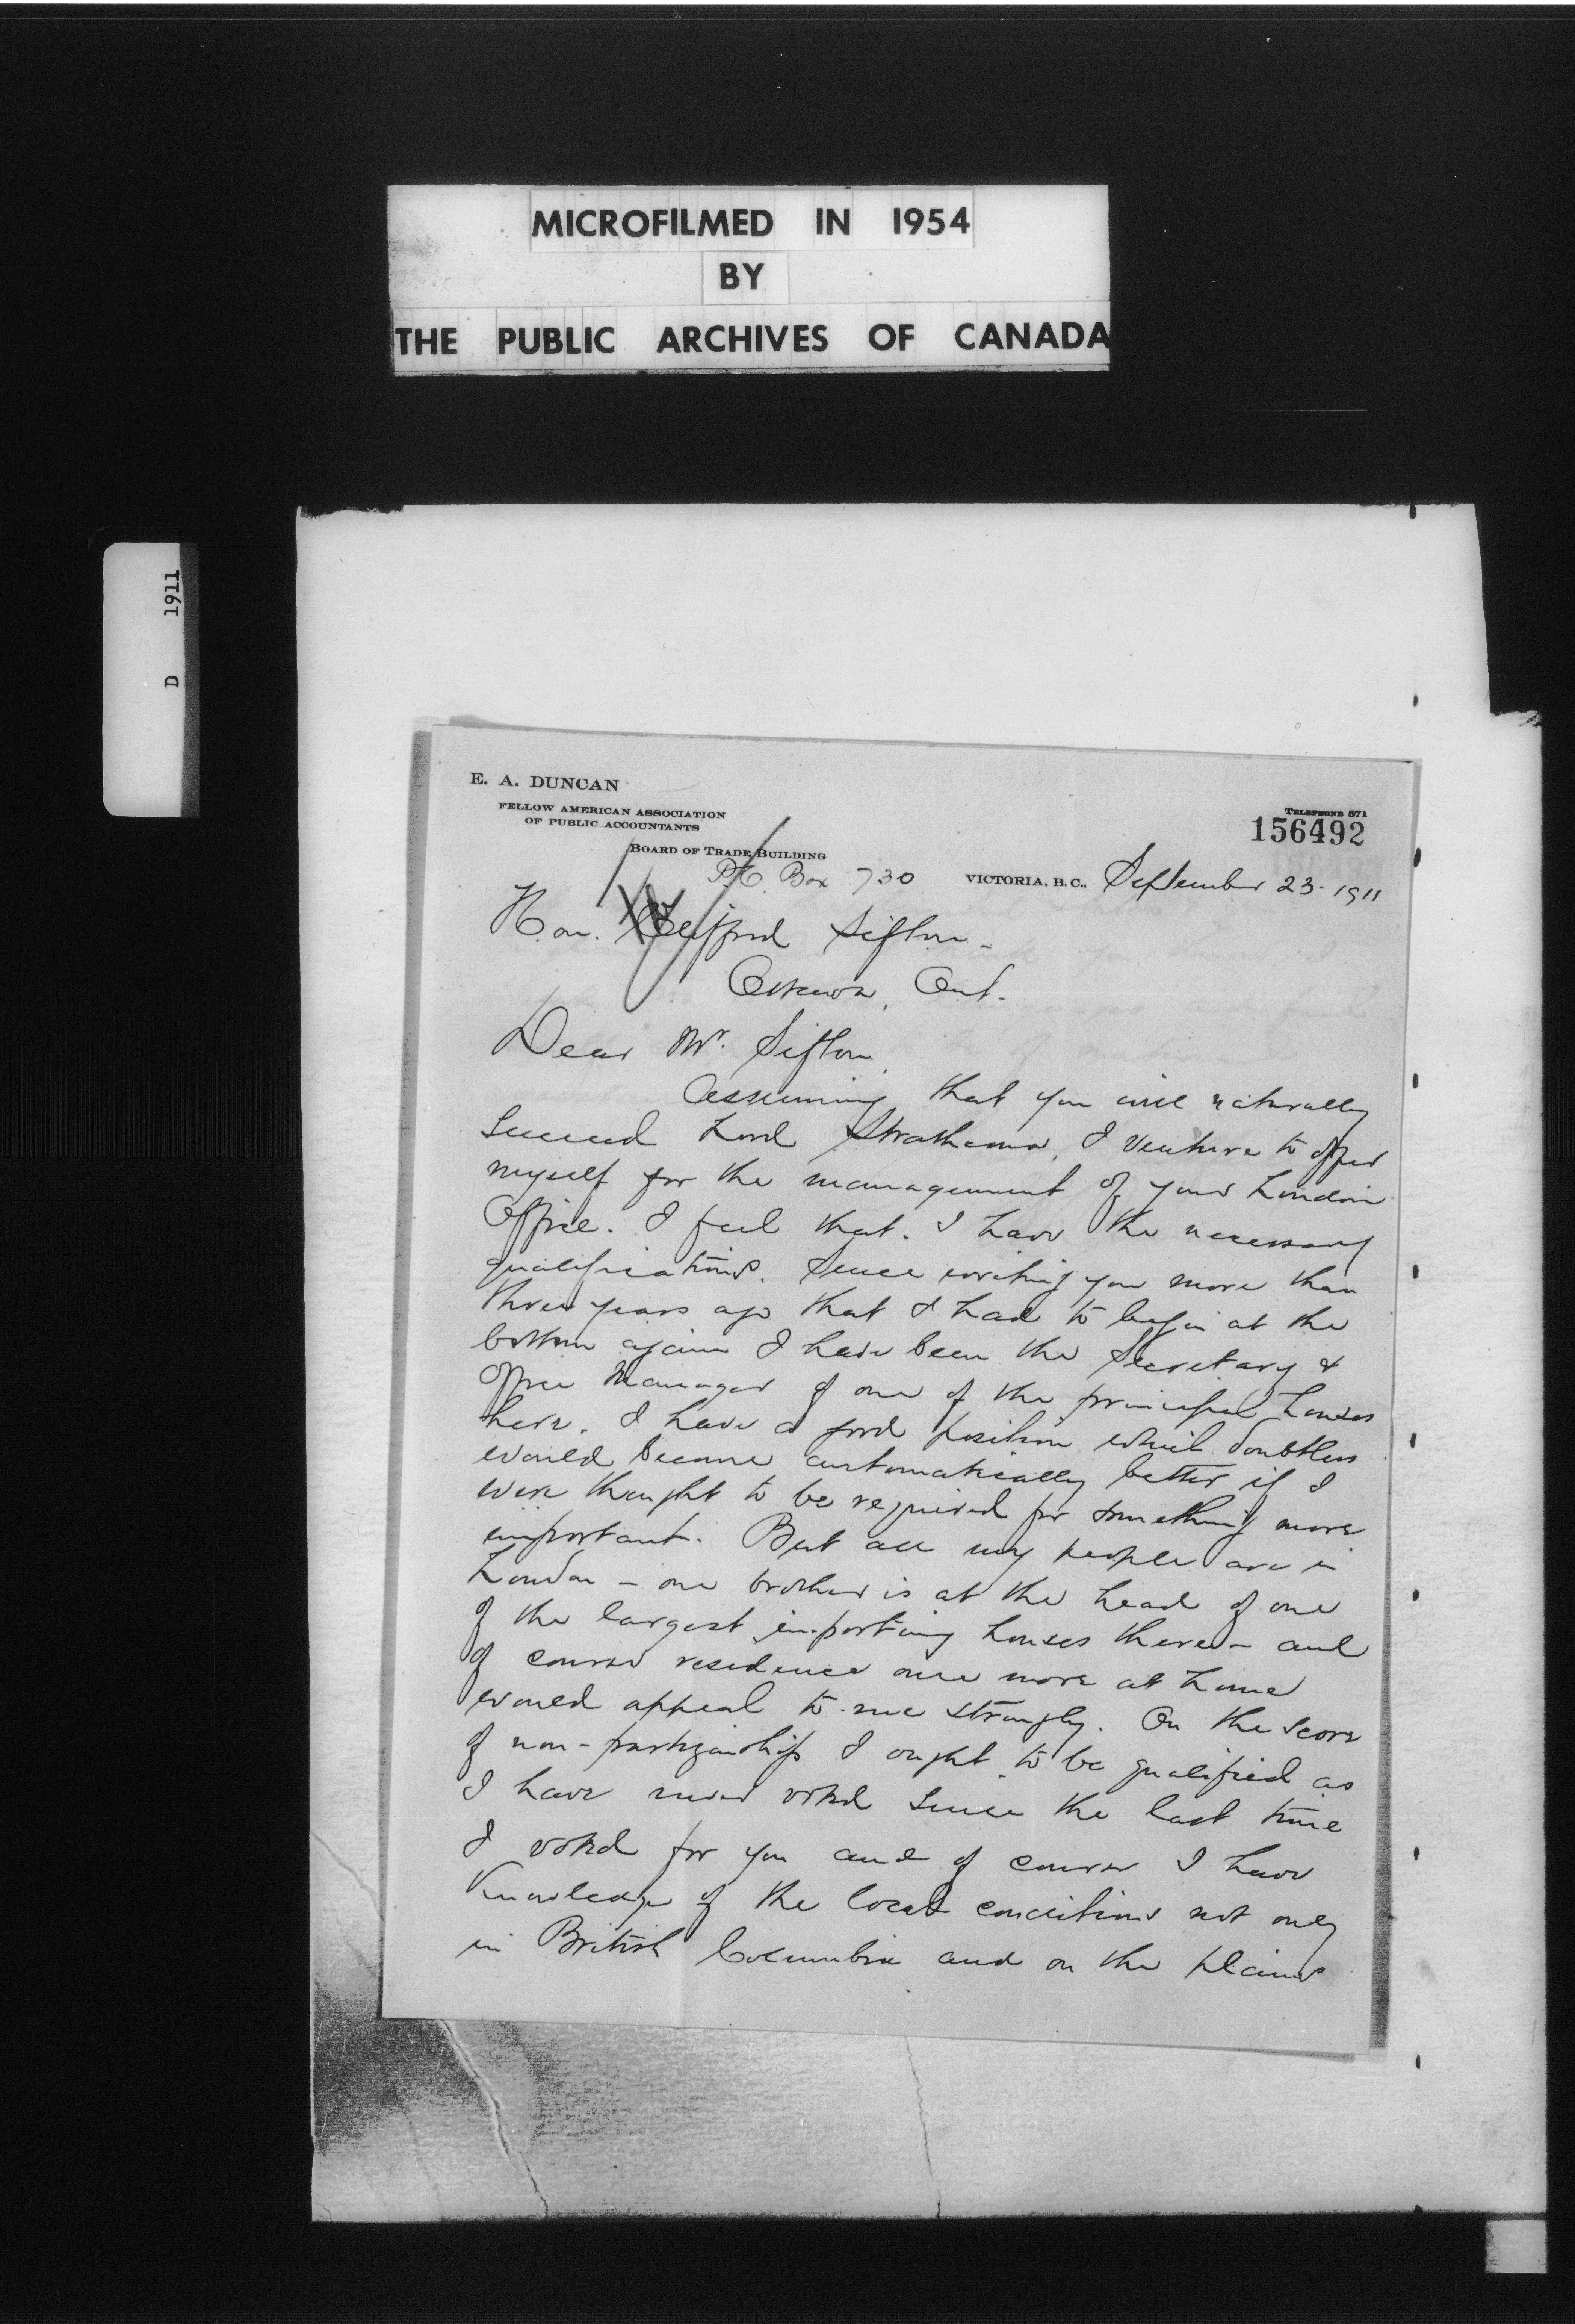 MICROFILMED IN 1954
BY
THE PUBLIC ARCHIVES OF CANADA
D 1911
E. A. DUNCAN
FELLOW AMERICAN ASSOCIATION
OF PUBLIC ACCOUNTANTS
TELEPHONE 571
156492
BOARD OF TRADE BUILDING
P.O. Box 730
VICTORIA, B.C., September 23. 1911
Hon. Clifford Sifton -
Ottawa, Ont.
Dear Mr. Sifton,
Assuming that you will naturally
succeed Lord Strathcona, I venture to offer
myself for the management of your London
Office. I feel that I have the necessary
qualifications. Since writing you more than
three years ago that I had to begin at the
bottom again I have been the Secretary &
Office Manager of one of the principal houses
here. I have a good position which doubtless
would become automatically better if I
were thought to be required for something more
important. But all my people are in
London - one brother is at the head of one
of the largest importing houses there - and
of course residence once more at home
would appeal to me strongly. On the score
of non-partizanship I ought to be qualified as
I have never voted since the last time
I voted for you and of course I have
knowledge of the local conditions not only
in British Columbia and on the plains